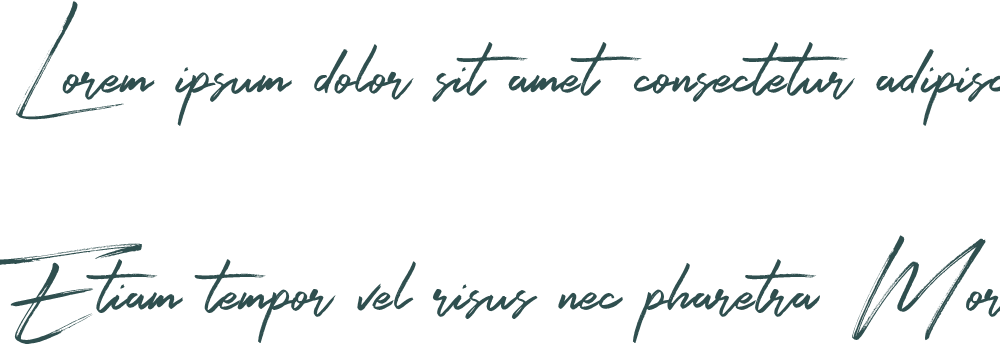 Lorem ipsum dolor sit amet consectetur adipisc
Etiam tempor vel risus nec pharetra Mor